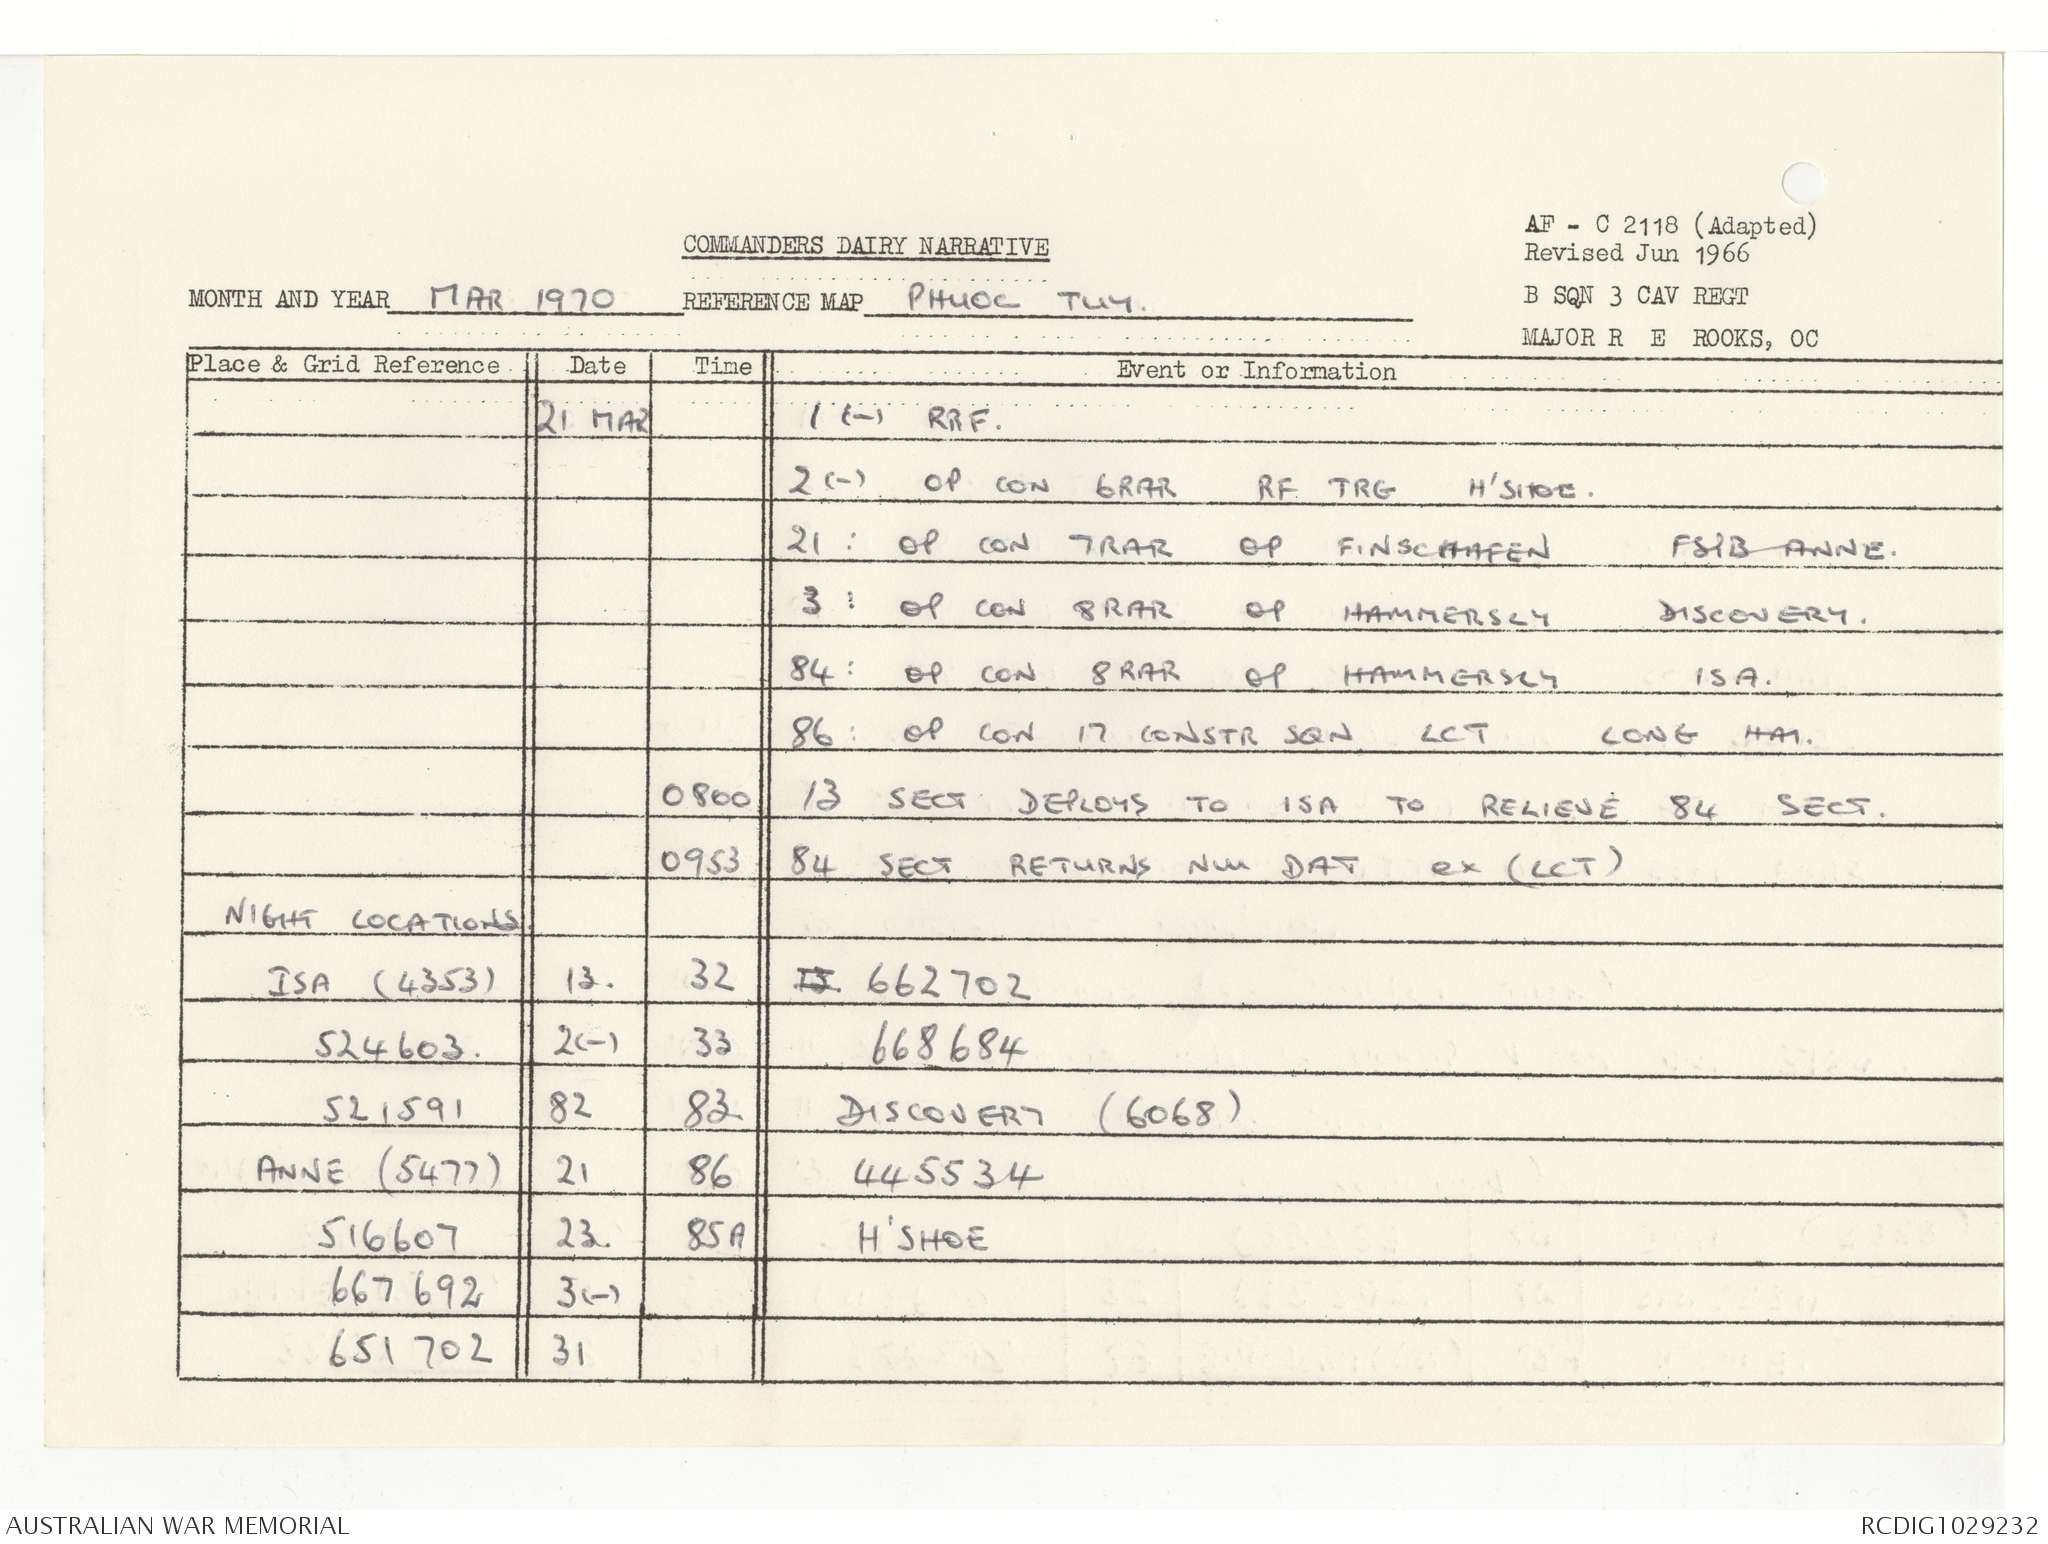 AF - C 2118 (Adapted)
Revised Jun 1966
COMMANDERS DAIRY NARRATIVE
MONTH AND YEAR MAR 1970 REFERENCE MAP PHUOC TUY.
B SQN 3 CAV REGT
MAJOR R E ROOKS, OC
Place & Grid Reference Date Time Event or Information
21 MAR 1 (-) RRF.
2 (-) OP CON 6RAR RF TRG H'SHOE.
21: OP CON 7RAR OP FINSCHAFEN FSPB ANNE.
3: OP CON 8RAR OP HAMMERSLY DISCOVERY.
84: OP CON 8RAR OP HAMMERSLY ISA.
86: OP CON 17 CONSTR SQN LCT LONG HAI.
0800 13 SECT DEPLOYS TO ISA TO RELIEVE 84 SECT.
0953 84 SECT RETURNS NUI DAT ex (LCT)
NIGHT LOCATIONS
ISA (4353) 13. 32 662702
524603. 2(-) 33 668684
521591 82 83. DISCOVERY (6068)
ANNE (5477) 21 86 445534
516607 23. 85A H'SHOE
667692 3(-)
651702 31
AUSTRALIAN WAR MEMORIAL RCDIG1029232